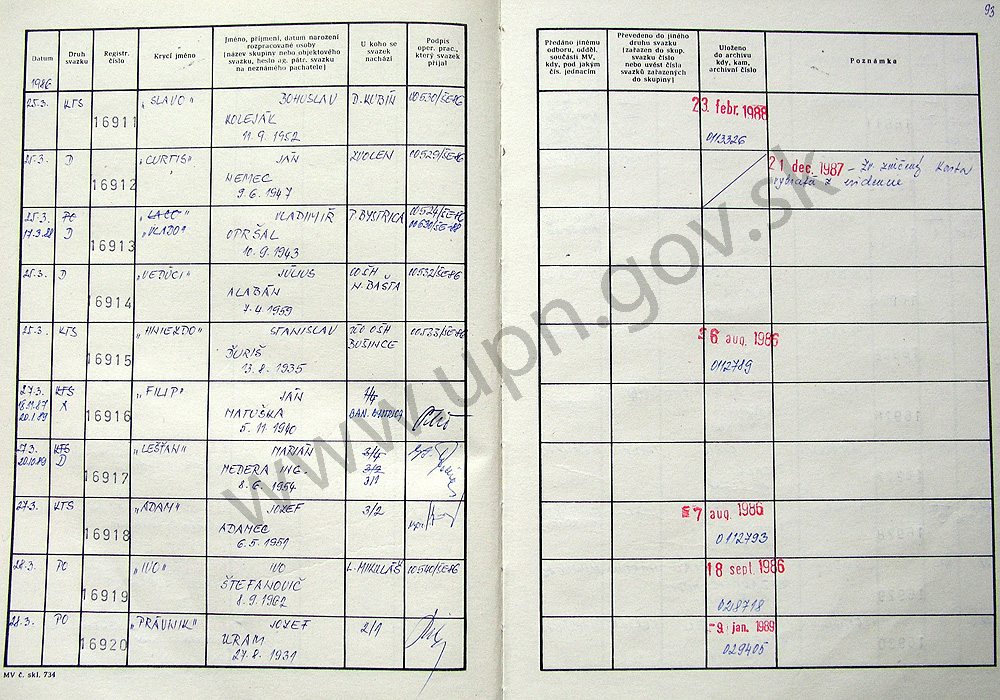 93
Datum
Druh
svazku
Registr.
číslo
Krycí jméno
Jméno, příjmení, datum narození
rozpracované osoby
(název skupiny nebo objektového
svazku, heslo ag. pátr. svazku
na neznámého pachatele)
U koho se
svazek
nachází
Podpis
oper. prac.,
který svazek
přijal
Předáno jinému
odboru, odděl.
součásti MV,
kdy, pod jakým
čís. jednacím
Převedeno do jiného
druhu svazku
(zařazen do skup.
svazku číslo
nebo uvést čísla
svazků zařazených
do skupiny)
Uloženo
do archivu
kdy, kam,
archivní číslo
Poznámka
1986
25.3. KTS 16911 "SLAVO" BOHUSLAV D. KUBÍN 00530/SE-86
KOLEJÁK
11.9.1952
23. febr. 1988
0113326
25.3. D 16912 "CURTIS" JÁN ZVOLEN 00529/SE-86
NEMEC
9.6.1947
21 dec. 1987 - Zv. zničený Karta
vybratá z evidence
25.3. PO 16913 "LACO" VLADIMÍR P. BYSTRICA 00524/SE-86
17.3.88 D "VLADO"
OPRŠAL
10.9.1943
25.3. D 16914 "VEDÚCI" JÚLIUS OO ŠH 00532/SE-86
ALABÁN N. BAŠTA
7.4.1959
25.3. KTS 16915 "HNIEZDO" STANISLAV OO OŠH 00533/SE-86
ĎURIŠ BUŠINCE
13.8.1935
26 aug. 1986
0112789
27.3. KTS 16916 "FILIP" JÁN
A
MATUŠKA
5.11.1940
27.3. KTS 16917 "LEŠŤAN" MARIÁN
D
MEDERA ING.
8.6.1954
27.3. KTS 16918 "ADAM" JOZEF 3/2
ADAMEC
6.5.1951
27 aug. 1986
0112793
28.3. PO 16919 "IVO" IVO L. MIKULÁŠ 00540/SE-86
ŠTEFANOVIČ
8.9.1962
18 sept. 1986
028718
28.3. PO 16920 "PRÁVNIK" JOZEF 2/1
URAM
27.8.1931
-9. jan. 1989
029405
MV č. skl. 734
www.upn.gov.sk